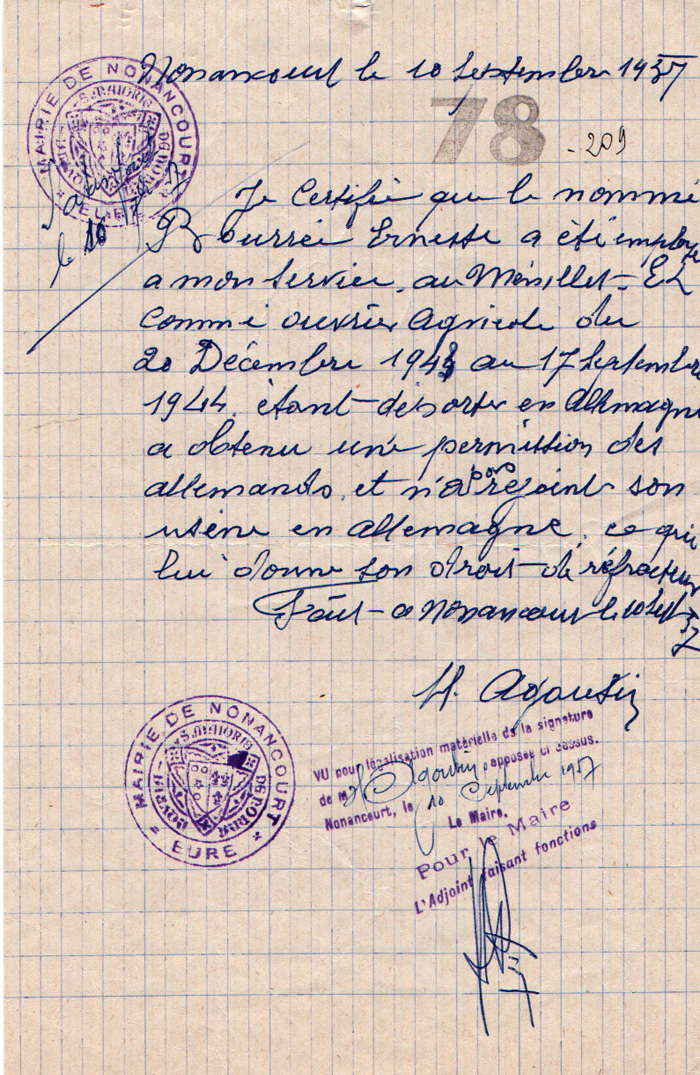 MAIRIE DE NONANCOURT
EURE
Nonancourt le 10 Septembre 1957
78
- 209
le 10
Je Certifie que le nommé
Bourrée Ernesste a été employé
a mon Service, au Mesillet - EL
comme ouvrier Agricole du
20 Décembre 1943 au 17 Septembre
1944. étant déporter en Allemagne
a obtenu une permission des
allemands, et n'a pas rejoint son
usène en Allemagne, ce qui
lui donne son droit de réfracteur
Fait a Nonancourt le 10 Sept 57
H. Agoutin
MAIRIE DE NONANCOURT
S. MAIORIS
EURE
VU pour légalisation matérielle de la signature
de M Agoutin, apposée ci dessus.
Nonancourt, le 10 Septembre 1957
Le Maire,
Pour le Maire
L'Adjoint faisant fonctions